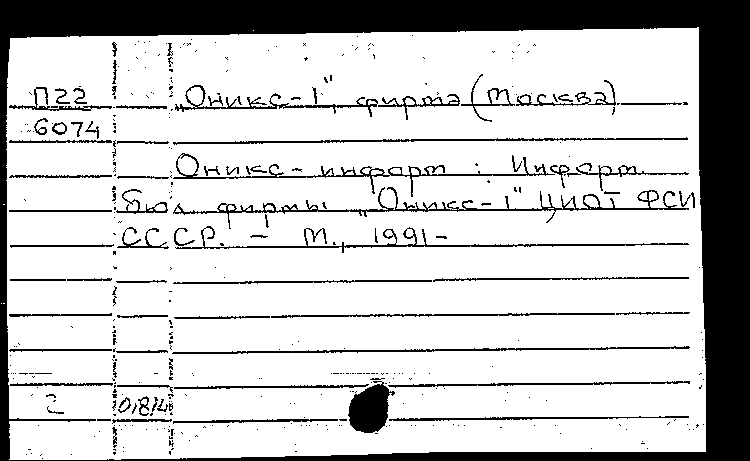 П22 „Оникс-1", фирма (Москва)
6074
Оникс-информ : Информ.
бюл фирмы „Оникс-1" ЦИОТ ФСИ
СССР. - М., 1991-
2